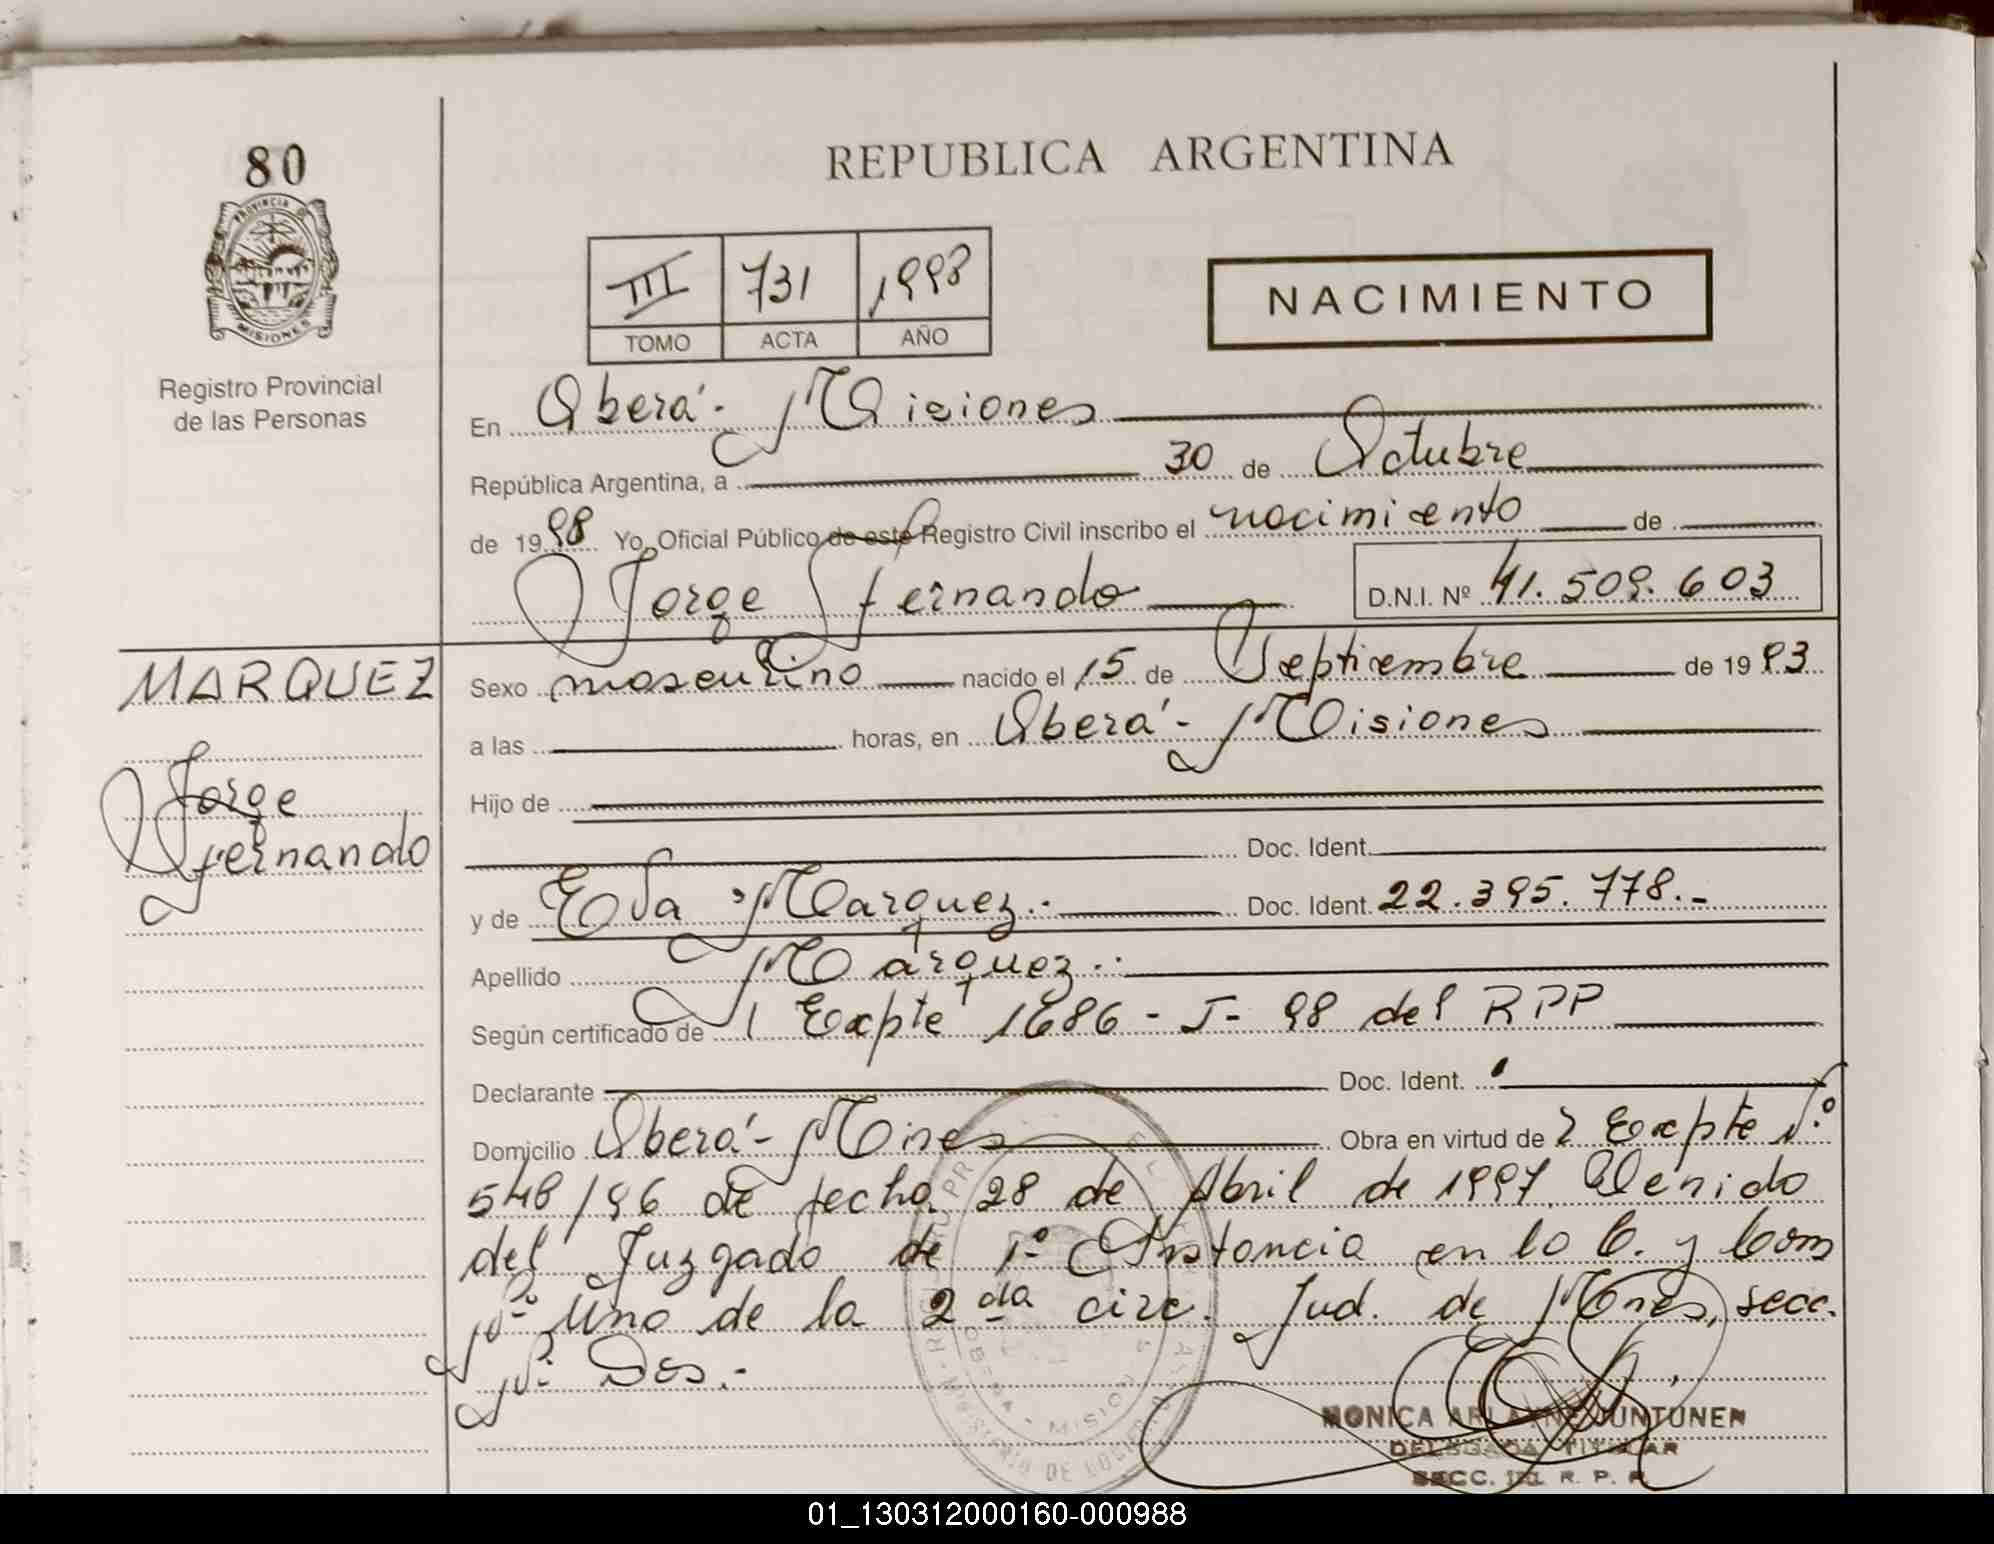 80
PROVINCIA DE
MISIONES
Registro Provincial
de las Personas
REPUBLICA ARGENTINA
III 731 1998
TOMO ACTA AÑO
NACIMIENTO
En Oberá - Misiones
República Argentina, a 30 de Octubre
de 1998 Yo, Oficial Público de este Registro Civil inscribo el nacimiento de
Jorge Fernando D.N.I. Nº 41.509.603
MARQUEZ
Jorge
Fernando
Sexo masculino nacido el 15 de Septiembre de 1993
a las horas, en Oberá - Misiones
Hijo de
Doc. Ident.
y de Eva Marquez.- Doc. Ident. 22.395.778.-
Apellido Marquez.-
Según certificado de Expte 1686 - J - 98 del RPP
Declarante Doc. Ident.
Domicilio Oberá - Mnes Obra en virtud de Expte Nº
548/96 de fecha 28 de Abril de 1997 Venido
del Juzgado de 1º Instancia en lo C. y Com
Nº Uno de la 2da circ. Jud. de Mnes, secc.
Nº Dos.-
OBERA - MISIONES
MONICA ARLAYNE JUNTUNEN
DELEGADA TITULAR
SECC. R. P. P.
01_130312000160-000988